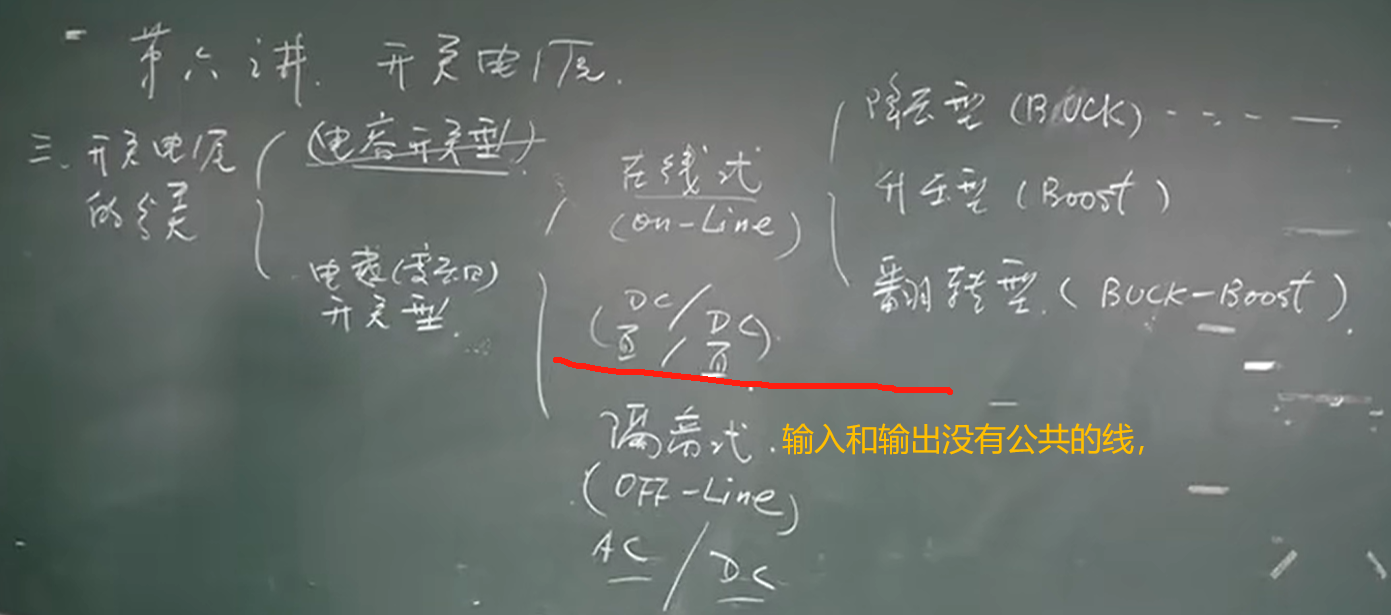 第六讲. 开关电源.
三、开关电源
的分类
(电容开关型)
电感(变压器)
开关型.
在线式
(On-Line)
(DC/DC)
直/直
降压型(BUCK)
升压型(Boost)
翻转型.(BUCK-Boost).
隔离式.
输入和输出没有公共的线，
(OFF-Line)
AC/DC